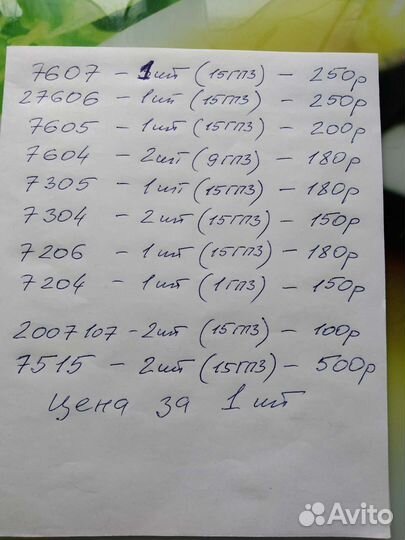 7607 - 1шт (15ГПЗ) - 250р
27606 - 1шт (15ГПЗ) - 250р
7605 - 1шт (15ГПЗ) - 200р
7604 - 2шт (9ГПЗ) - 180р
7305 - 1шт (15ГПЗ) - 180р
7304 - 2шт (15ГПЗ) - 150р
7206 - 1шт (15ГПЗ) - 180р
7204 - 1шт (1ГПЗ) - 150р
2007107 - 2шт (15ГПЗ) - 100р
7515 - 2шт (15ГПЗ) - 500р
Цена за 1шт
Avito